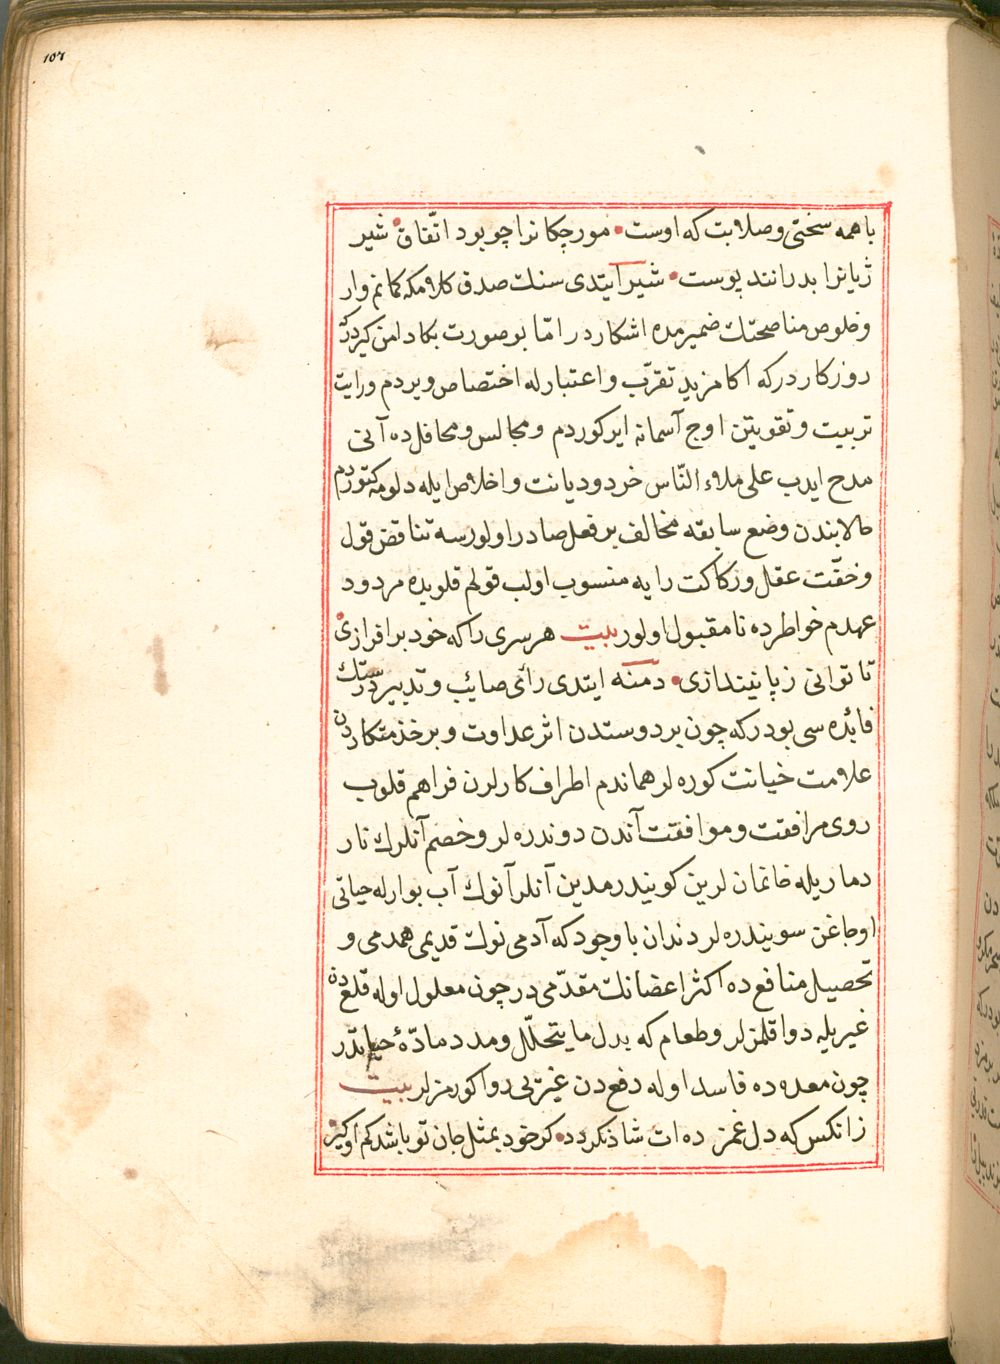 ١٥٦
با همه سختی و صلابت که اوست • مورچکانرا چو بود اتّفاق • شیر
ژیانرا بدرانند پوست • شیر ایتدی سنك صدق کلامکه کمانم وار
و خلوص مناصحتك ضمیرمده اشکاردر امّا بو صورت بکا دامن کیردر که
روزکاردرکه اکا مزید تقرّب و اعتبارله اختصاص ویردم و رایت
تربیت و تقویتن اوج آسمانه ایرکوردم و مجالس و محافلده آنی
مدح ایدب علی ملاء النّاس خرد و دیانت و اخلاص ایله دلومه کتوردم
حالا بندن وضع سابقه مخالف بر فعل صادر اولورسه تناقض قول
و خفّت عقل و رکاکت رایه منسوب اولب قولم قلوبده مردود
عهدم خواطرده نامقبول اولور بیت هر سری را که خود برافرازی •
تا توانی ز پا نیندازی • دمنه ایتدی رأی صائب و تدبیر درستك
فائده سی بودرکه چون بر دوستدن اثر عداوت و بر خدمتکاردن
علامت خیانت کوره لر هماندم اطراف کارلرن فراهم قلوب
روی مرافقت و موافقت آندن دوندره لر و خصم آنلرك نار
دمار یله خانمان لرین کویندرمدین آنلر آنوك آب بوارله حیاتی
اوجاغن سویندره لر دندان با وجود که آدمی نوك قدیمی همدمی و
تحصیل منافعده اکثر اعضانك مقدّمی در چون معلول اوله قلعدن
غیریله دوا قلمزلر و طعام که بدل ما یتحلّل و مدد مادّهٔ حیاتدر
چون معده ده فاسد اوله دفعدن غیری روا کورمزلر بیت
زانکس که دل غمزده ات شاد نکردد • کر خود بمثل جان تو باشد کم او کیر •